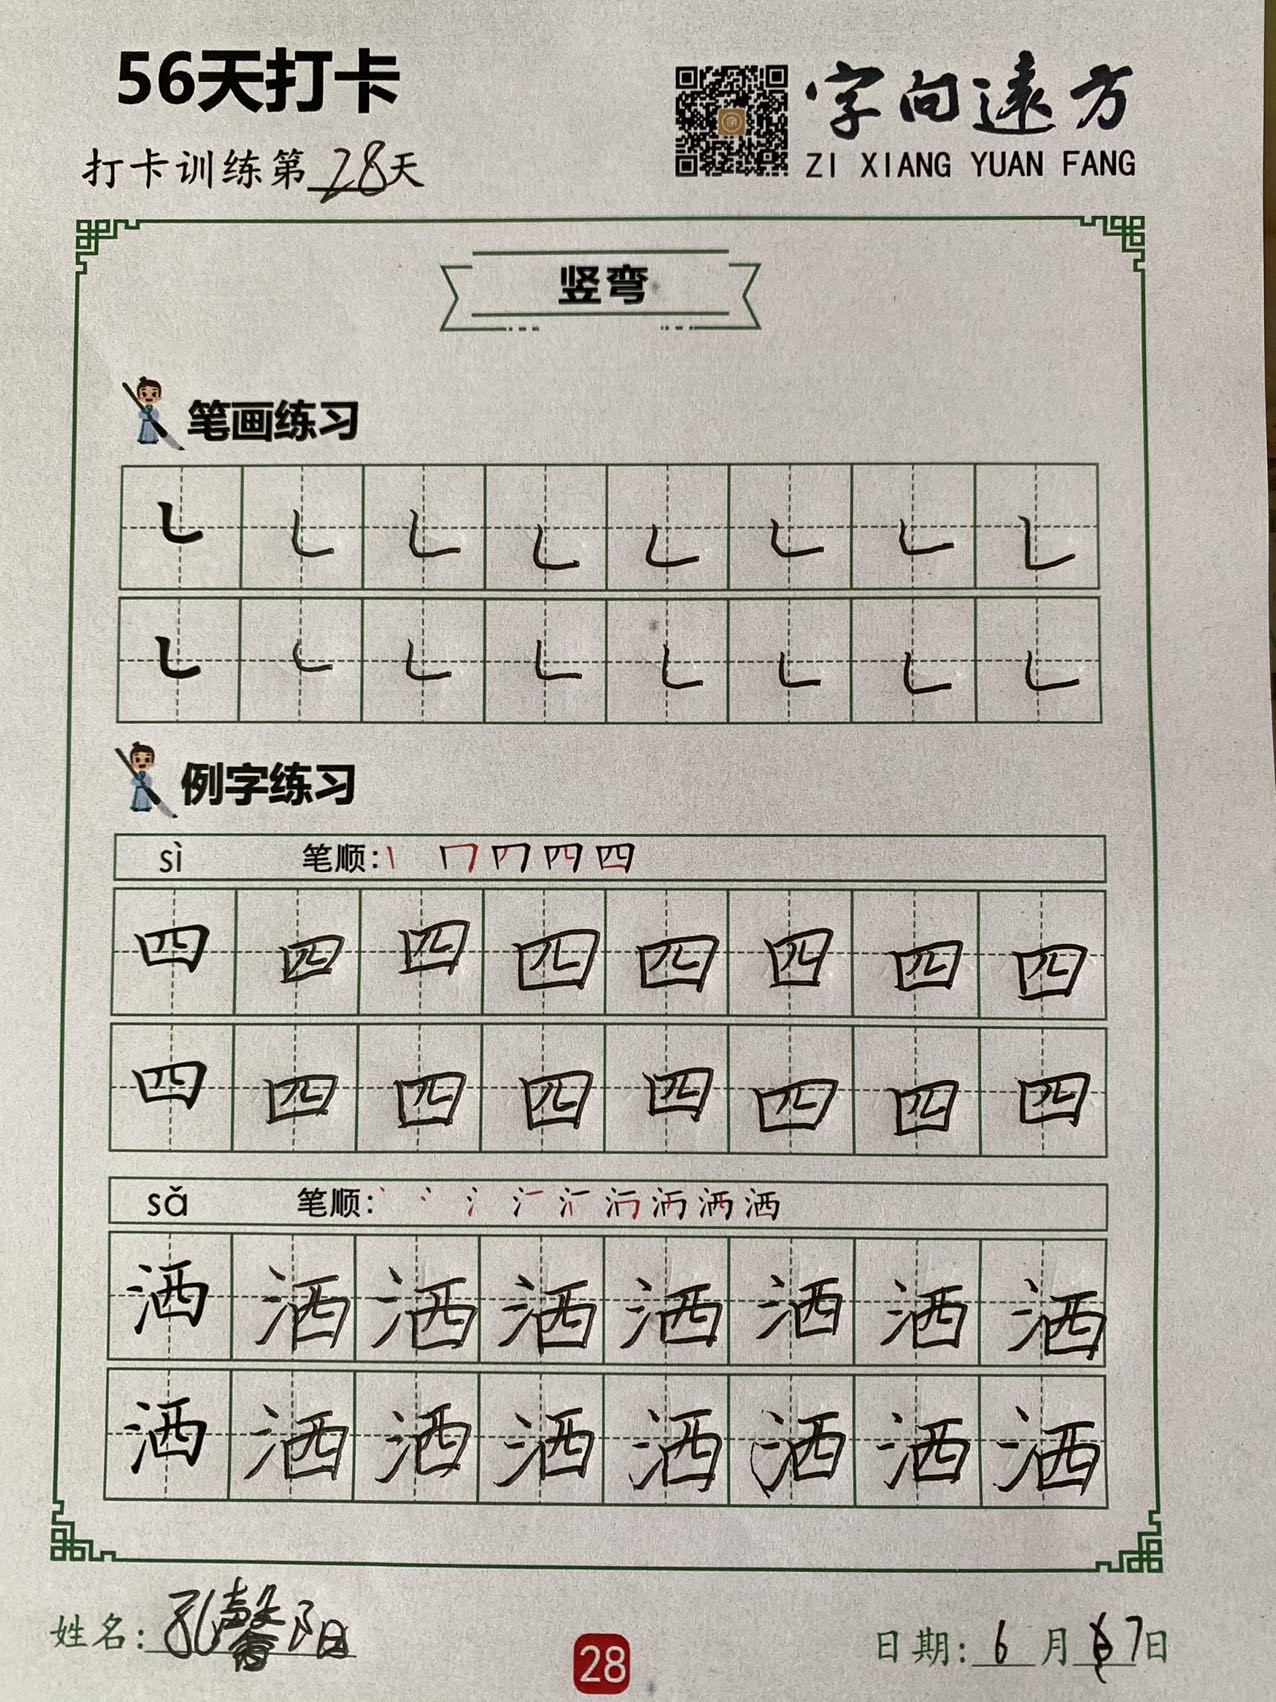 56天打卡
字向远方
打卡训练第28天
ZI XIANG YUAN FANG
竖弯
笔画练习
㇄ ㇄ ㇄ ㇄ ㇄ ㇄ ㇄ ㇄
㇄ ㇄ ㇄ ㇄ ㇄ ㇄ ㇄ ㇄
例字练习
sì 笔顺: 四
四 四 四 四 四 四 四 四
四 四 四 四 四 四 四 四
sǎ 笔顺: 洒
洒 洒 洒 洒 洒 洒 洒 洒
洒 洒 洒 洒 洒 洒 洒 洒
姓名: 孔馨阳
28
日期: 6月7日